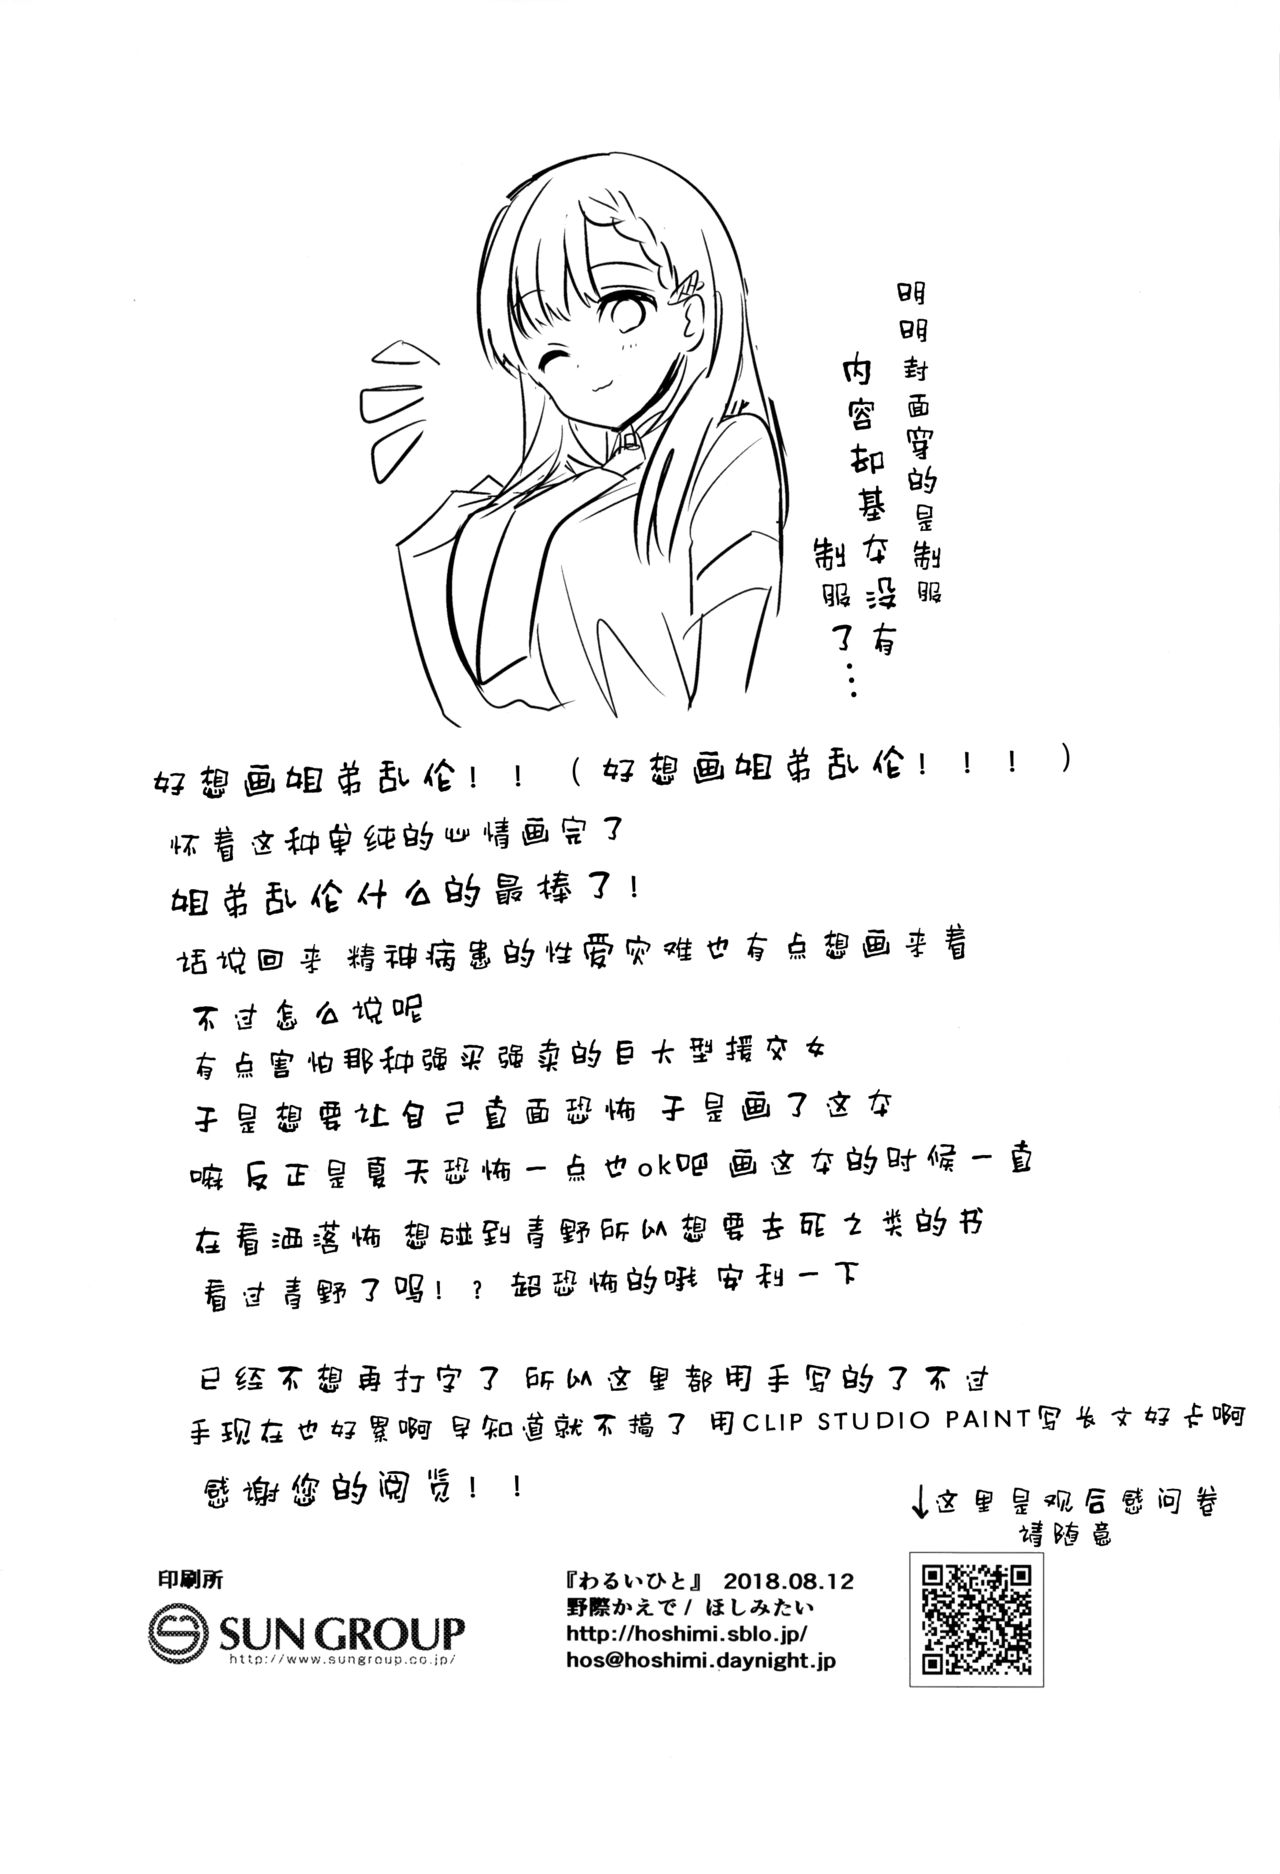 明明封面穿的是制服
内容却基本没有
制服了…
好想画姐弟乱伦！！（好想画姐弟乱伦！！！）
怀着这种单纯的心情画完了
姐弟乱伦什么的最棒了！
话说回来 精神病患的性爱灾难也有点想画来着
不过怎么说呢
有点害怕那种强买强卖的巨大型援交女
于是想要让自己直面恐怖 于是画了这本
嘛 反正是夏天恐怖一点也ok吧 画这本的时候一直
在看洒落怖 想碰到青野所以想要去死之类的书
看过青野了吗！？超恐怖的哦 安利一下
已经不想再打字了 所以这里都用手写的了不过
手现在也好累啊 早知道就不搞了 用CLIP STUDIO PAINT写长文好卡啊
感谢您的阅览！！
↓这里是观后感问卷
请随意
印刷所
SUN GROUP
http://www.sungroup.co.jp/
『わるいひと』 2018.08.12
野際かえで / ほしみたい
http://hoshimi.sblo.jp/
hos@hoshimi.daynight.jp